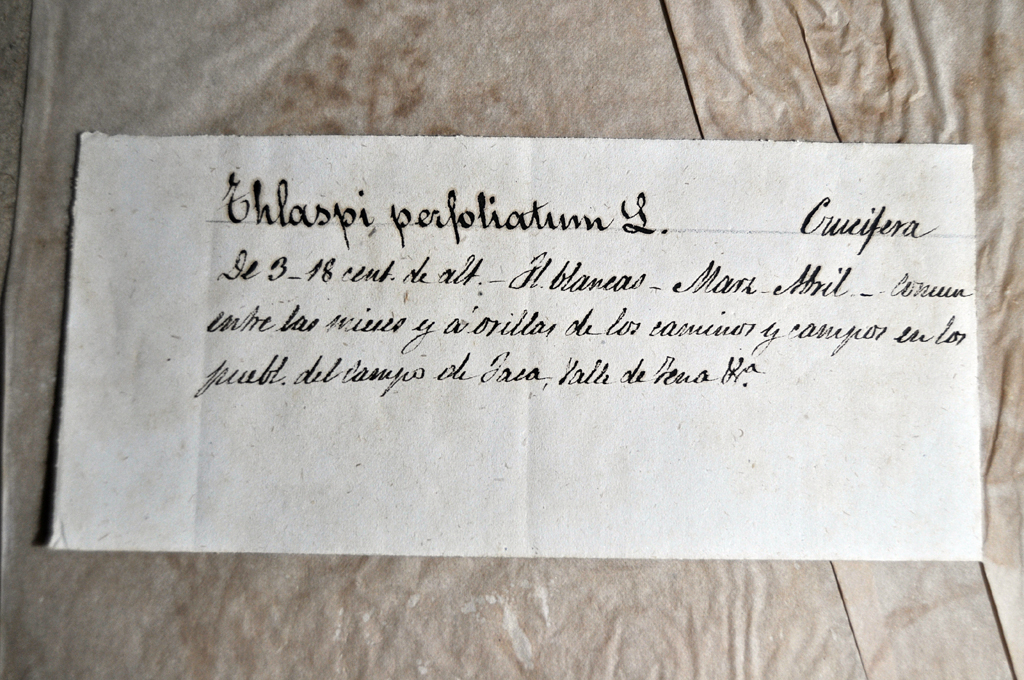 Thlaspi perfoliatum L. Crucifera
De 3-18 cent. de alt. - Fl. blancas - Marz - Abril - Comun
entre las mieses y á orillas de los caminos y campos en los
puebl. del Campo de Jaca, Valle de Tena &.ª